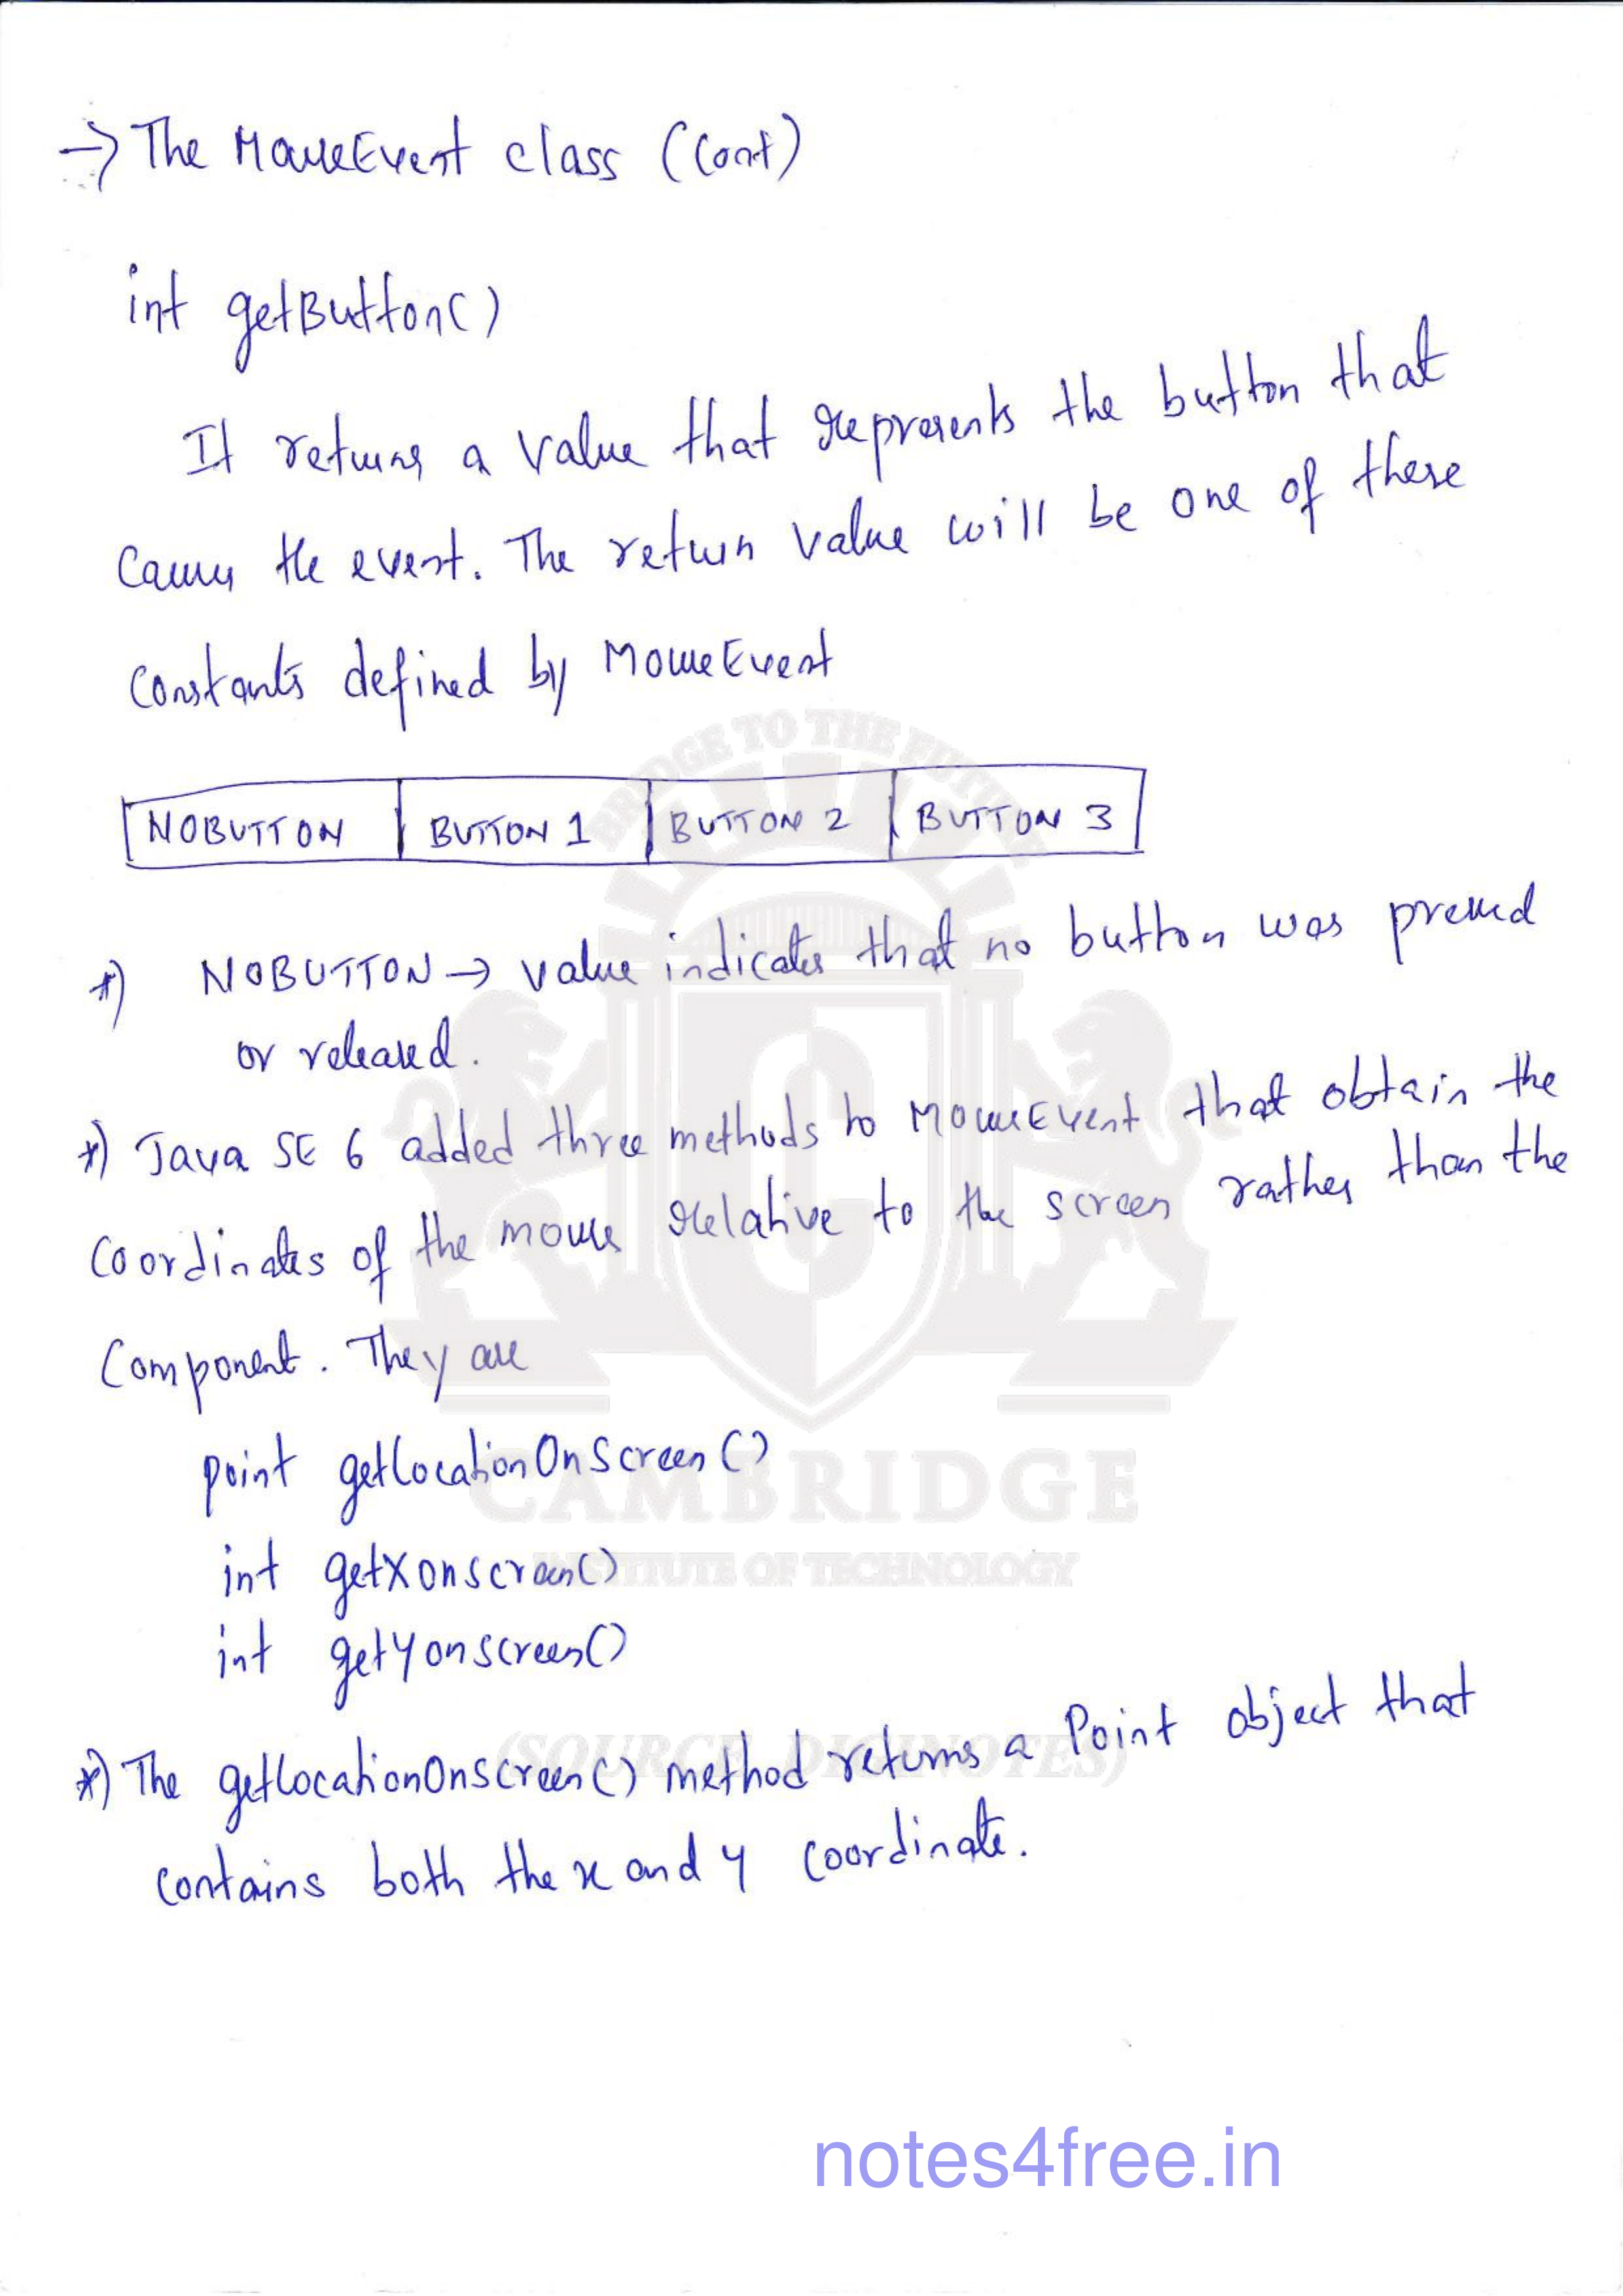 → The MouseEvent class (Cont)
int getButton()
It returns a value that represents the button that
causes the event. The return value will be one of these
constants defined by MouseEvent
BRIDGE TO THE FUTURE
NOBUTTON | BUTTON 1 | BUTTON 2 | BUTTON 3
*) NOBUTTON → value indicates that no button was pressed
or released.
*) Java SE 6 added three methods to MouseEvent that obtain the
coordinates of the mouse relative to the screen rather than the
component. They are
point getLocationOnScreen()
CAMBRIDGE
int getXonscreen()
INSTITUTE OF TECHNOLOGY
int getYonscreen()
(SOURCE DIGINOTES)
*) The getLocationOnScreen() method returns a Point object that
contains both the x and y coordinate.
notes4free.in